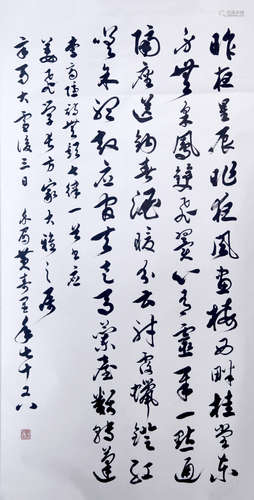 昨夜星辰昨夜風畫樓西畔桂堂東
身無彩鳳雙飛翼心有靈犀一點通
隔座送鈎春酒暖分曹射覆蠟鐙紅
嗟余聽鼓應官去走馬蘭臺類轉蓬
李商隱詩無題七律一首 應
學長方家大雅之屬
大雪後三日 年七十又八